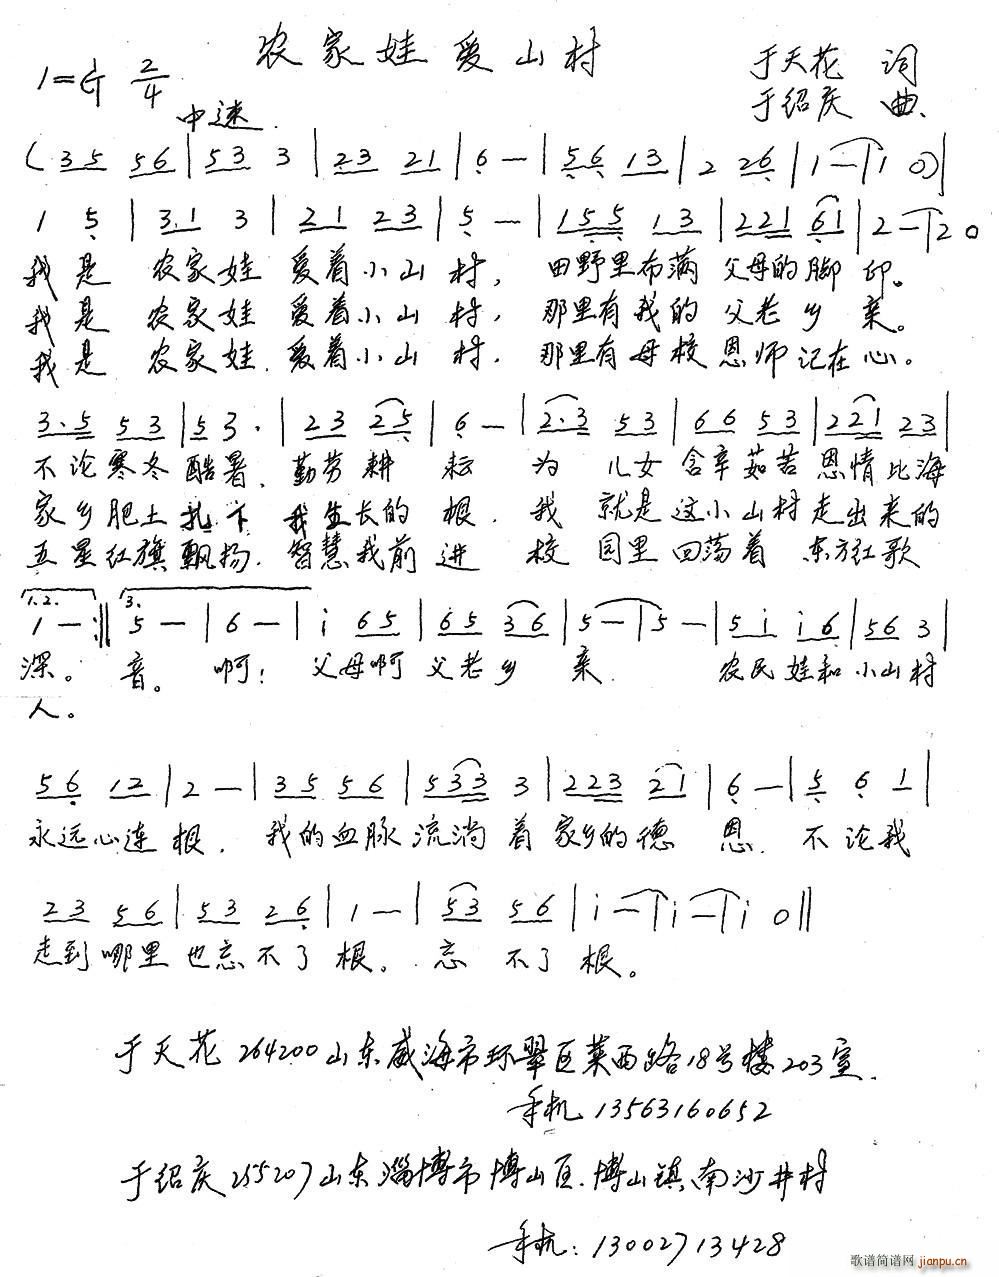 农家娃爱山村
1=G 2/4
于天花 词
于绍庆 曲
中速
( 3 5 5 6 | 5 3 3 | 2 3 2 1 | 6 — | 5 6 1 3 | 2 2 6 | 1 — | 1 0 ) |
1 5 | 3. 1 3 | 2 1 2 3 | 5 — | 1 5 5 1 3 | 2 2 1 6 1 | 2 — | 2 0
我是 农家娃 爱着小山村, 田野里布满 父母的脚印。
我是 农家娃 爱着小山村, 那里有我的父老乡亲。
我是 农家娃 爱着小山村, 那里有母校恩师记在心。
3. 5 5 3 | 5 3. | 2 3 2 5 | 6 — | 2. 3 5 3 | 6 6 5 3 | 2 2 1 2 3 |
不论寒冬酷暑, 勤劳耕耘 为儿女含辛茹苦恩情比海
家乡肥土扎下 我生长的根, 我就是这小山村走出来的
五星红旗飘扬, 智慧我前进 校园里回荡着东方红歌
1.2. 3.
1 — :‖ 5 — | 6 — | i 6 5 | 6 5 3 6 | 5 — | 5 — | 5 i i 6 | 5 6 3 |
深。 音。 啊! 父母啊父老乡亲 农民娃和小山村
人。
5 6 1 2 | 2 — | 3 5 5 6 | 5 3 3 3 | 2 2 3 2 1 | 6 — | 5 6 1 |
永远心连根, 我的血脉流淌着家乡的德恩, 不论我
2 3 5 6 | 5 3 2 6 | 1 — | 5 3 5 6 | i — | i — | i 0 ‖
走到哪里也忘不了根。 忘不了根。
于天花 264200 山东威海市环翠区莱西路18号楼203室.
手机 13563160652
于绍庆 255207 山东淄博市博山区.博山镇南沙井村
手机: 13002713428
歌谱简谱网 jianpu.cn